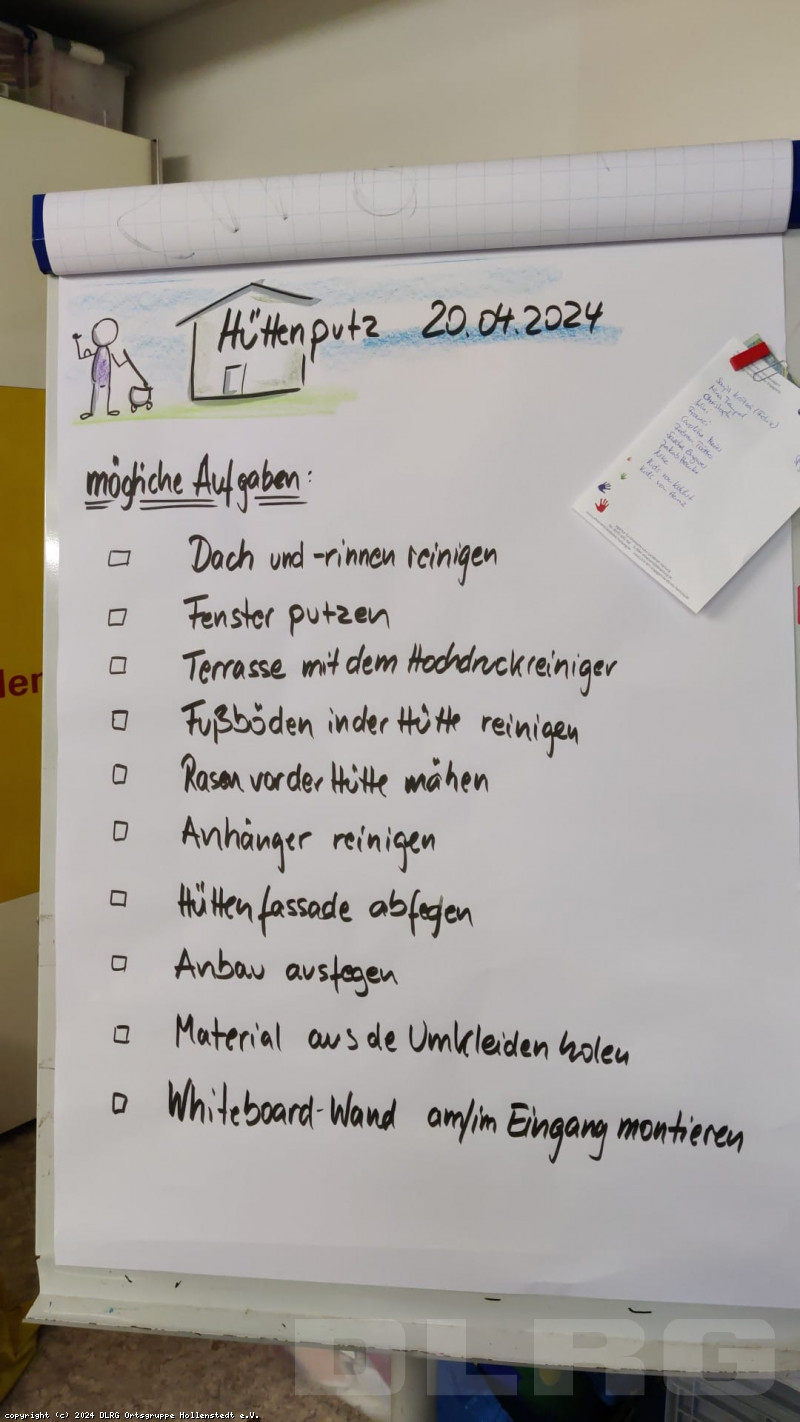 Hüttenputz 20.04.2024
mögliche Aufgaben:
Dach und -rinnen reinigen
Fenster putzen
Terrasse mit dem Hochdruckreiniger
Fußböden in der Hütte reinigen
Rasen vor der Hütte mähen
Anhänger reinigen
Hüttenfassade abfegen
Anbau ausfegen
Material aus de Umkleiden holen
Whiteboard-Wand am/im Eingang montieren
DLRG
copyright (c) 2024 DLRG Ortsgruppe Hollenstedt e.V.